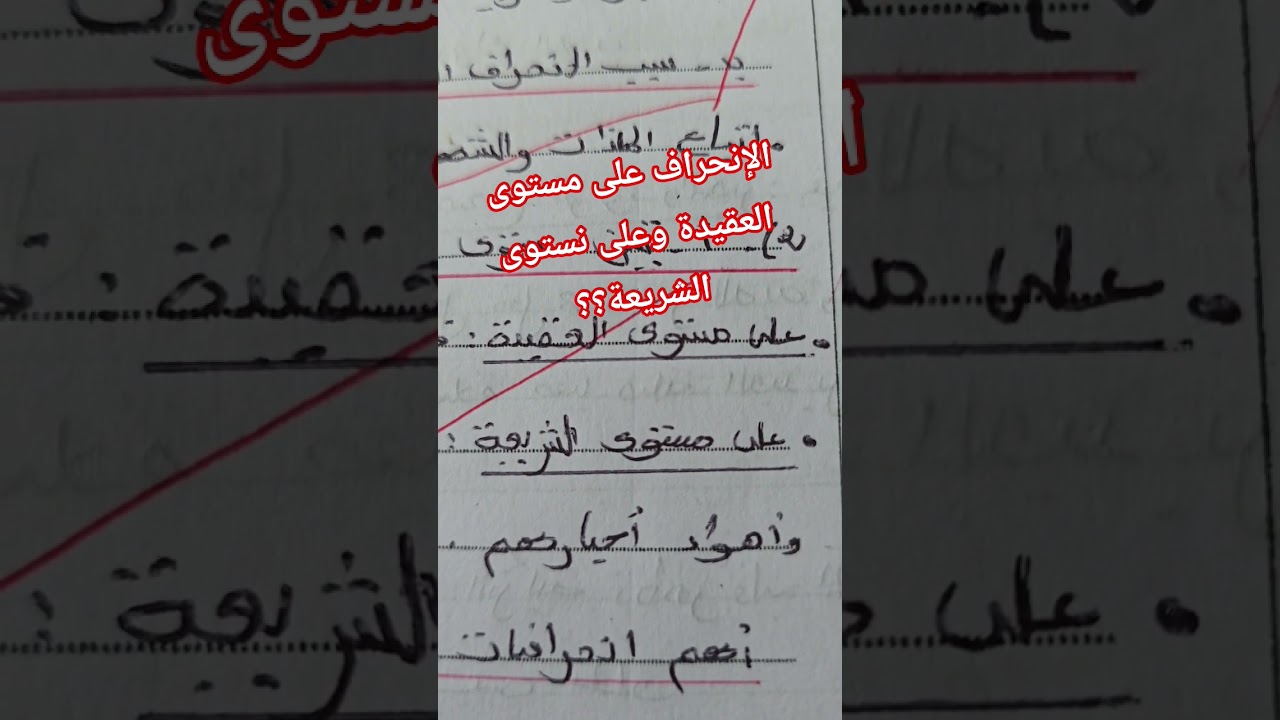 ب - سبب الانحراف
. اتباع الملذات والشه
الإنحراف على مستوى
العقيدة وعلى نستوى
الشريعة؟؟
2) - 1 -
. على مستوى العقيدة :
. على مستوى الشريعة :
وأهواء أحبارهم .
أهم انحرافات